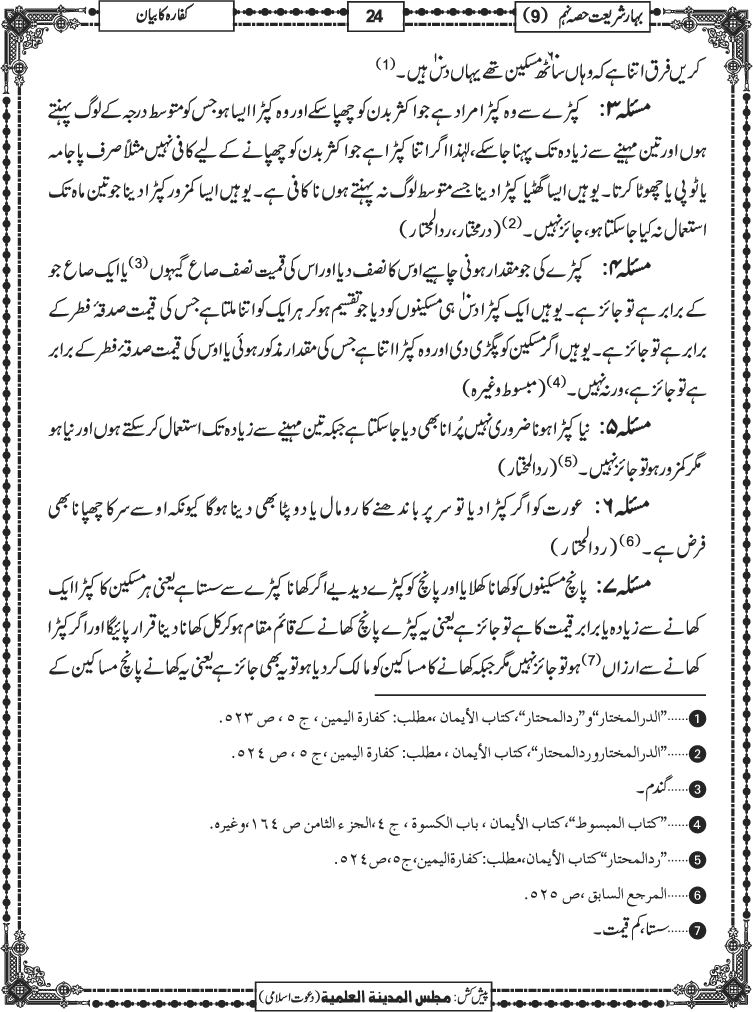 بہارِ شریعت حصہ نہم (9)
24
کفارہ کا بیان
کریں فرق اتنا ہے کہ وہاں ساٹھ ۶۰ مسکین تھے یہاں دس ۱۰ ہیں۔ (1)
مسئلہ ۳: کپڑے سے وہ کپڑا مراد ہے جو اکثر بدن کو چھپا سکے اور وہ کپڑا ایسا ہو جس کو متوسط درجہ کے لوگ پہنتے
ہوں اور تین مہینے سے زیادہ تک پہنا جاسکے، لہٰذا اگر اتنا کپڑا ہے جو اکثر بدن کو چھپانے کے لیے کافی نہیں مثلاً صرف پاجامہ
یا ٹوپی یا چھوٹا کرتا۔ یوہیں ایسا گھٹیا کپڑا دینا جسے متوسط لوگ نہ پہنتے ہوں ناکافی ہے۔ یوہیں ایسا کمزور کپڑا دینا جو تین ماہ تک
استعمال نہ کیا جاسکتا ہو، جائز نہیں۔ (2) (درمختار، ردالمحتار)
مسئلہ ۴: کپڑے کی جو مقدار ہونی چاہیے اوس کا نصف دیا اور اس کی قیمت نصف صاع گیہوں (3) یا ایک صاع جَو
کے برابر ہے تو جائز ہے۔ یوہیں ایک کپڑا دس ۱۰ ہی مسکینوں کو دیا جو تقسیم ہوکر ہر ایک کو اتنا ملتا ہے جس کی قیمت صدقۂ فطر کے
برابر ہے تو جائز ہے۔ یوہیں اگر مسکین کو پگڑی دی اور وہ کپڑا اتنا ہے جس کی مقدار مذکور ہوئی یا اوس کی قیمت صدقۂ فطر کے برابر
ہے تو جائز ہے، ورنہ نہیں۔ (4) (مبسوط وغیرہ)
مسئلہ ۵: نیا کپڑا ہونا ضروری نہیں پُرانا بھی دیا جاسکتا ہے جبکہ تین مہینے سے زیادہ تک استعمال کرسکتے ہوں اور نیا ہو
مگر کمزور ہو تو جائز نہیں۔ (5) (ردالمحتار)
مسئلہ ۶: عورت کو اگر کپڑا دیا تو سر پر باندھنے کا رومال یا دوپٹا بھی دینا ہوگا کیونکہ اوسے سر کا چھپانا بھی
فرض ہے۔ (6) (ردالمحتار)
مسئلہ ۷: پانچ مسکینوں کو کھانا کھلایا اور پانچ کو کپڑے دیدیے اگر کھانا کپڑے سے سستا ہے یعنی ہر مسکین کا کپڑا ایک
کھانے سے زیادہ یا برابر قیمت کا ہے تو جائز ہے یعنی یہ کپڑے پانچ کھانے کے قائم مقام ہوکر کل کھانا دینا قرار پائیگا اور اگر کپڑا
کھانے سے ارزاں (7) ہو تو جائز نہیں مگر جبکہ کھانے کا مساکین کو مالک کردیا ہو تو یہ بھی جائز ہے یعنی یہ کھانے پانچ مساکین کے
1 ......”الدرالمختار“ و”ردالمحتار“، کتاب الأیمان، مطلب: کفارۃ الیمین، ج ٥، ص ٥٢٣.
2 ......”الدرالمختاروردالمحتار“، کتاب الأیمان، مطلب: کفارۃ الیمین، ج ٥، ص ٥٢٤.
3 ......گندم۔
4 ......”کتاب المبسوط“، کتاب الأیمان، باب الکسوۃ، ج ٤، الجزء الثامن ص ١٦٤، وغیرہ.
5 ......”ردالمحتار“ کتاب الأیمان، مطلب: کفارۃالیمین، ج٥، ص٥٢٤.
6 ......المرجع السابق، ص ٥٢٥.
7 ......سستا، کم قیمت۔
پیش کش: مجلس المدینة العلمیة (دعوت اسلامی)